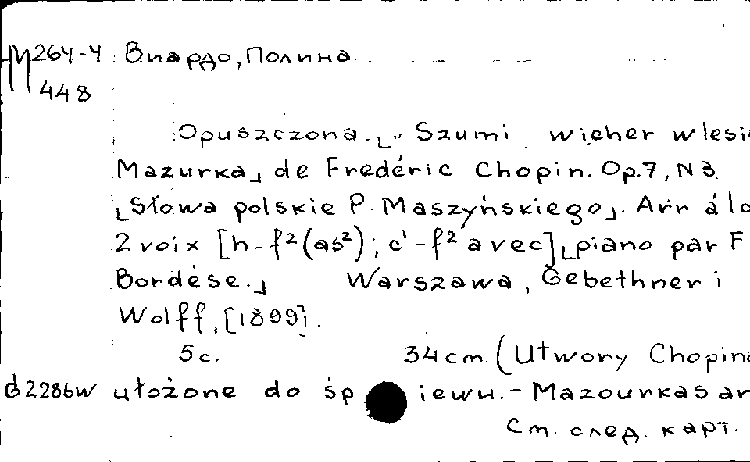 М264-4 Виардо, Полина
448
Opuszczona. „Szumi wicher w lesie
Mazurka„ de Fredéric Chopin. Op.7, N3
[Słowa polskie P. Maszyńskiego]. Arr à la
2 voix [h-f²(as²); c¹-f² avec] [piano par F
Bordèse.] Warszawa, Gebethner i
Wolff, [1899].
5 c. 34 cm. (Utwory Chopina
d2286w ułożone do śpiewu. - Mazourkas ar
См. след. карт.